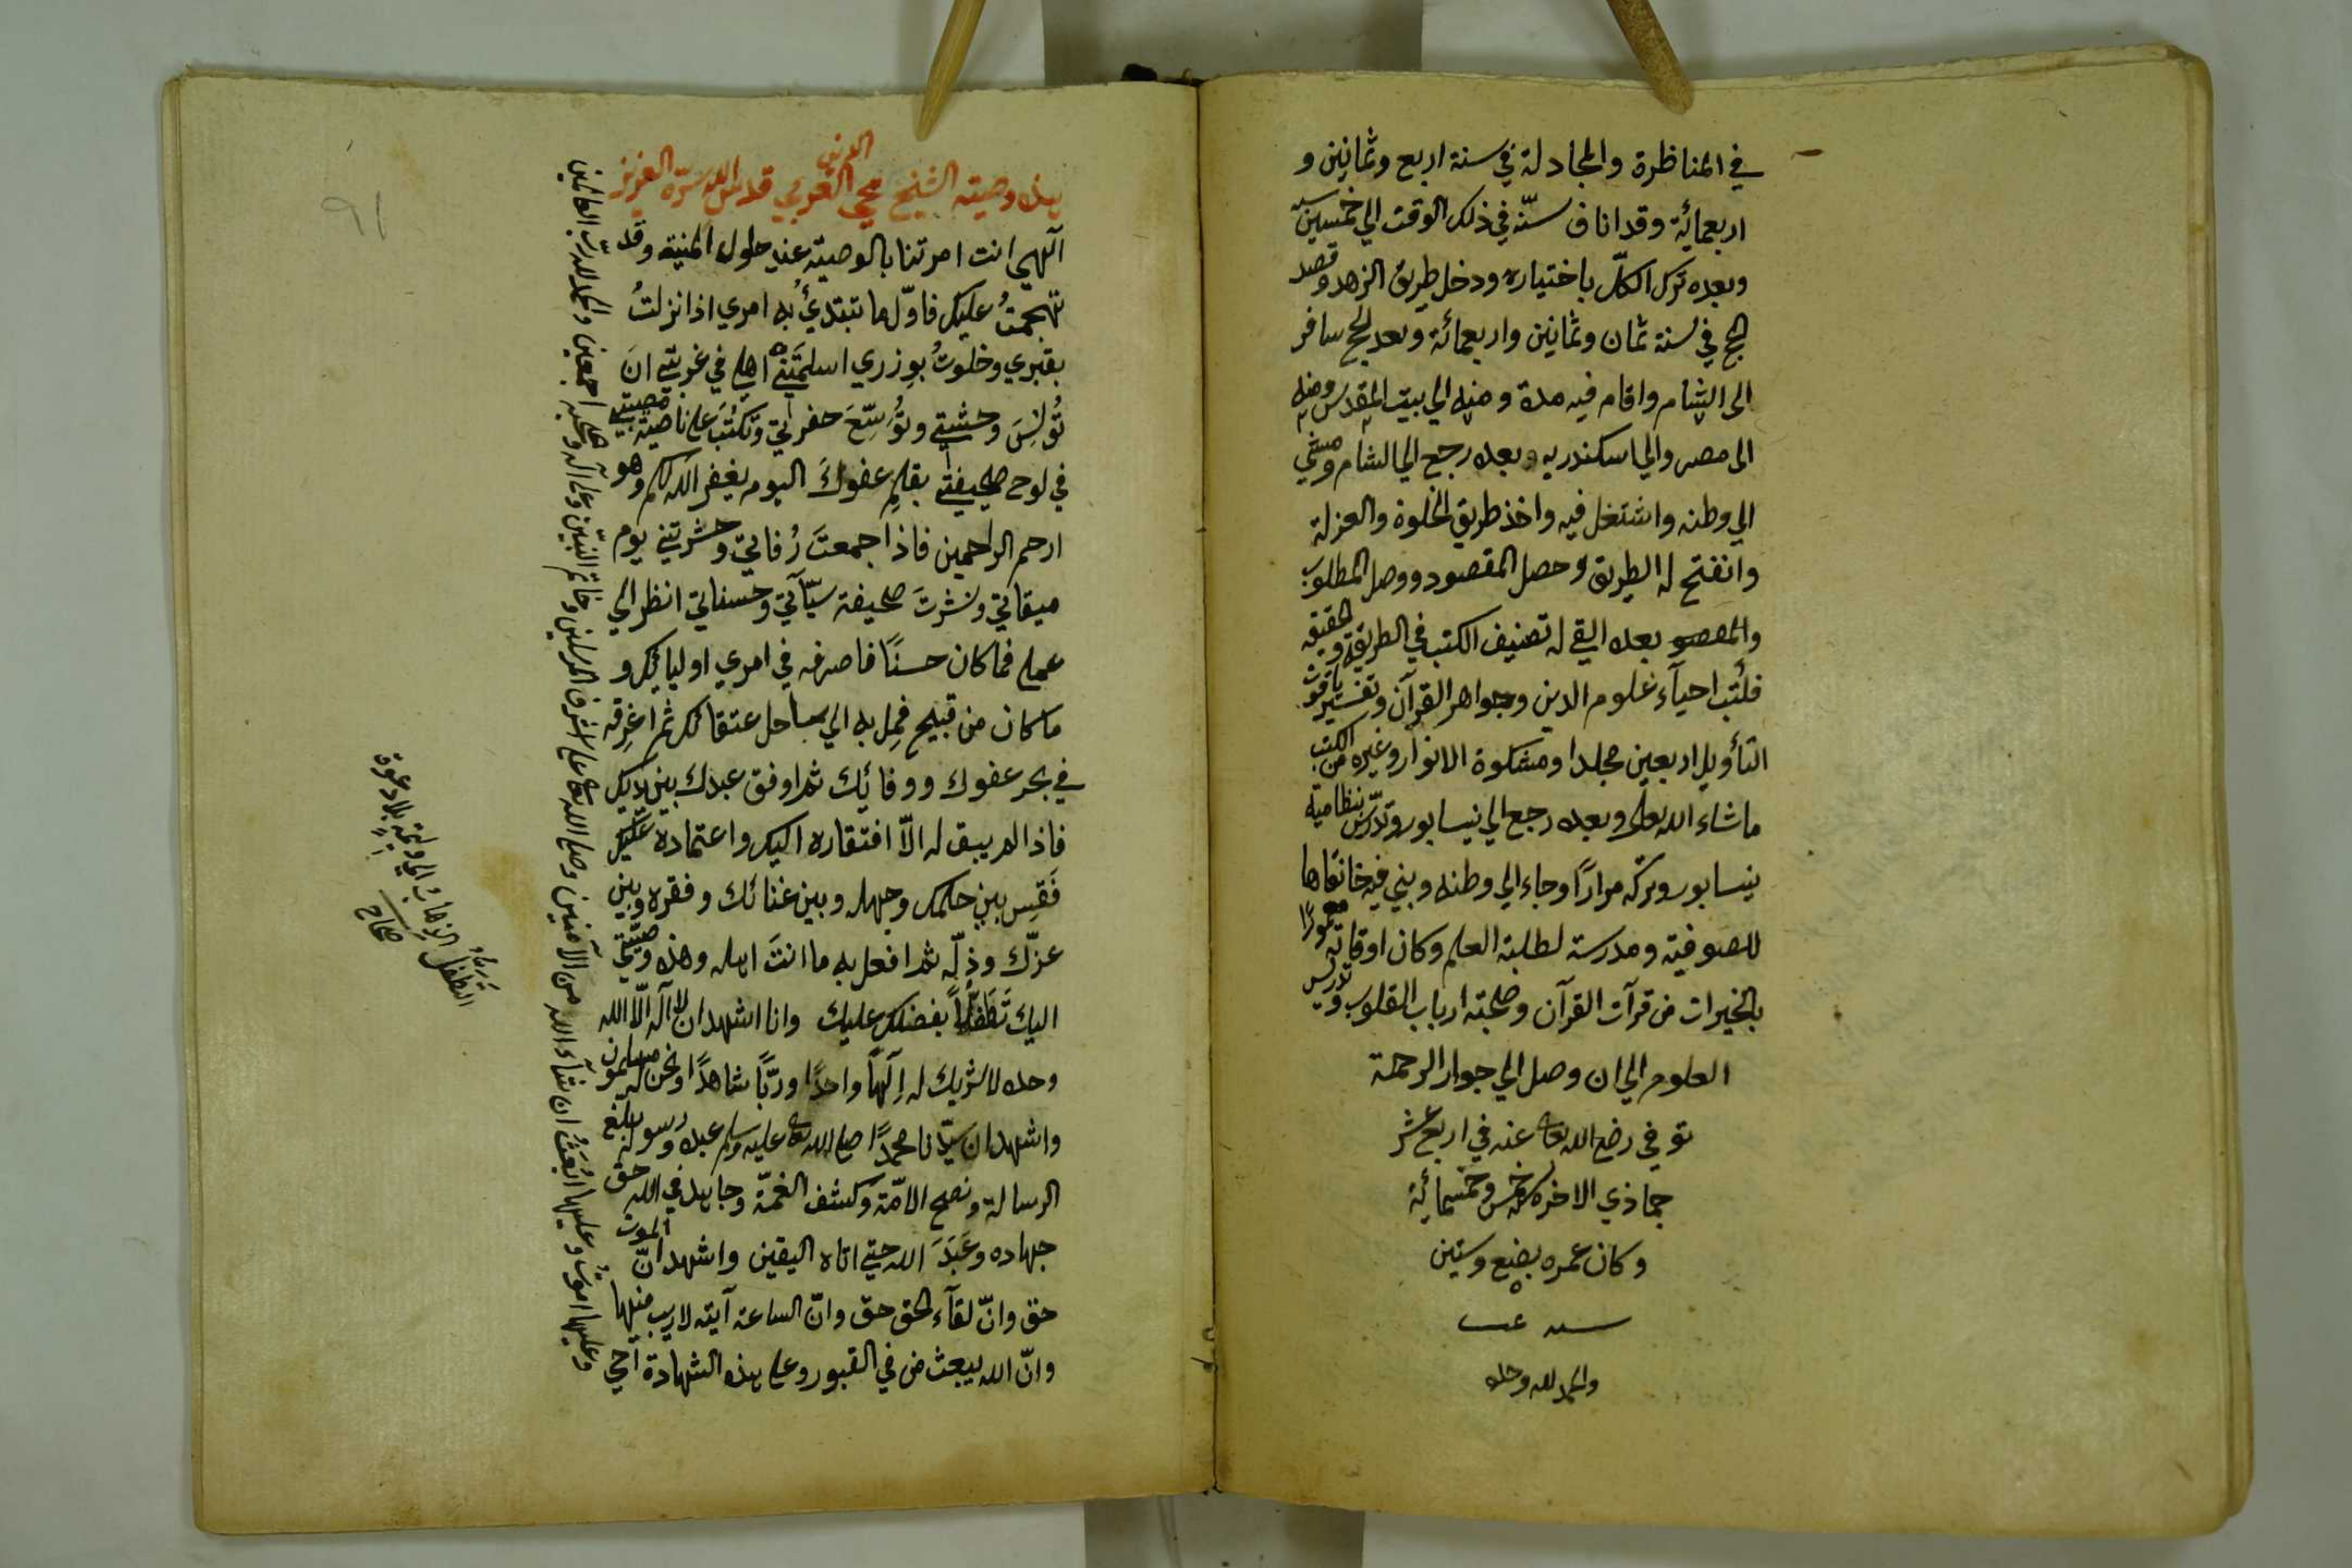 في المناظرة والمجادلة في سنة اربع وثمانين و
اربعمائة وقد اناف سنّه في ذلك الوقت الي خمسين سنه
وبعده ترك الكلّ باختياره ودخل طريق الزهد وقصد
الحج في سنة ثمان وثمانين واربعمائة وبعد الحج سافر
الى الشام واقام فيه مدة ومنه الي بيت المقدس ومنه
الى مصر والي اسكندريه وبعده رجع الي الشام ومشي
الي وطنه واشتغل فيه واخذ طريق الخلوة والعزلة
وانفتح له الطريق وحصل المقصود ووصل المطلوب
والمقصو بعده القي له تصنيف الكتب في الطريقة والحقيقه
فكتب احيآء علوم الدين وجواهر القرآن وتفسير ياقوت
التأويل اربعين مجلدا ومشكوة الانوار وغيره من الكتب
ما شاء الله تعالى وبعده رجع الي نيسابور وتدرّس بنظامية
نيسابور وتركه مرارًا وجاء الي وطنه وبني فيه خانقاها
للصوفية ومدرسة لطلبة العلم وكان اوقاته معمورًا
بالخيرات من قرآت القرآن وصحبة ارباب القلوب وتدريس
العلوم الي ان وصل الي جوار الرحمة
توفي رضي الله تعالى عنه في اربع عشر
جماذي الاخره سنة خمس وخمسمائة
وكان عمره بضع وستين
سنه
والحمد لله وحده
هذه وصية الشيخ محي الدين العربي قدس الله سرّه العزيز
آلهي انت امرتنا بالوصية عند حلول المنية وقد
تهجمتُ عليك فاوّل ما تبتدئُ به امري اذا نزلتُ
بقبري وخلوتُ بوزري اسلمَتنِي اهلي في غربتي انَ
تُونِسَ وحشتي وتُوَسِّعَ حفرتي وتكتُبَ على ناصية مصيبتي
في لوح صحيفتي بقلمِ عفوكَ اليوم يغفر الله لكم وهو
ارحم الراحمين فاذا جمعتَ رُفاتي وحشرتني يوم
ميقاتي ونشرتَ صحيفة سيّآتي وحسناتي انظر الي
عملي فما كان حسنًا فاصرفه في امري اوليائك و
ما كان من قبيح فمِل به الي ساحل عتقائك ثم اغرِقه
في بحر عفوك ووفائِك ثم اوفق عبدك بين يديك
فاذا لم يبق له الاّ افتقاره اليك واعتماده عليك
فَقِس بين حلمك وجهله وبين غنائك وفقره وبين
عزّك وذلّه ثم افعل به ما انتَ اهله وهذه وصيّتي
اليك تَطَفُّلاً بفضلك عليك وانا اشهد ان لا اله الّا الله
وحده لا شريك له اِلَهًا واحدًا وربًّا شاهدًا ونحن له مسلمون
واشهد ان سيّدنا محمدًا صلى الله تعالى عليه وسلم عبده ورسوله بلّغ
الرسالة ونصح الامّة وكشف الغمّة وجاهد في الله حق
جهاده وعَبَدَ الله حتى اتاه اليقين واشهد انّ الموت
حق وانّ لقآء الحق حق وانّ الساعة آتية لا ريب فيها
وانّ الله يبعث من في القبور وعلى هذه الشهادة احي
وعليها اموتُ وعليها اُبعَثُ ان شآء الله من الآمنين وصلى الله تعالى على اشرف المرسلين وخاتم النبيّين وعلى آله وصحبه اجمعين والحمد لله ربّ العالمين
التطفل الذهابُ الي وليمة بلا دعوة
صحاح
٩١